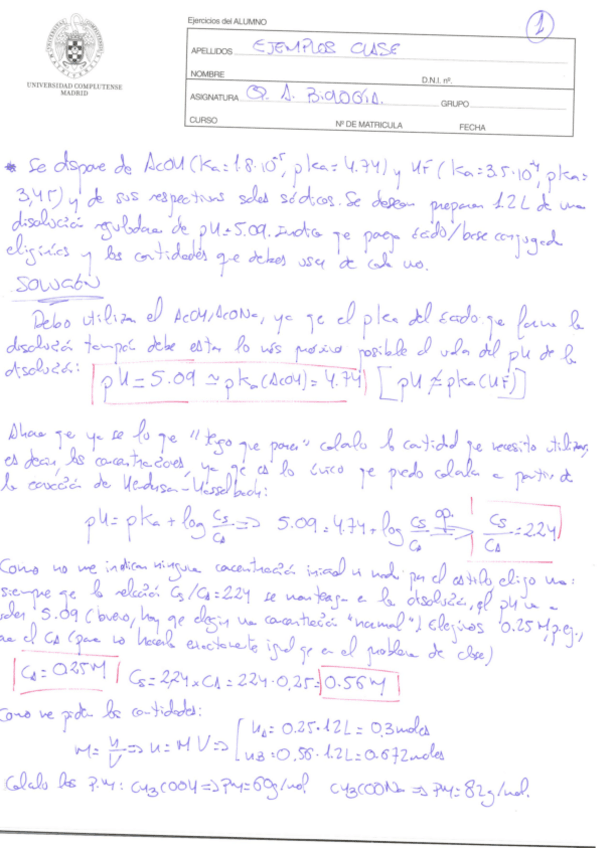 Ejercicios del ALUMNO
1
UNIVERSIDAD COMPLUTENSE
MADRID
APELLIDOS EJEMPLOS CLASE
NOMBRE D.N.I. nº.
ASIGNATURA Q. A. BIOLOGÍA. GRUPO
CURSO Nº DE MATRICULA FECHA
* Se dispone de AcOH (Ka=1.8·10⁻⁵, pKa=4.74) y HF (Ka=3.5·10⁻⁴, pKa=
3,45) y de sus respectivas sales sódicas. Se desean preparar 1.2L de una
disolución reguladora de pH=5.09. Indica qe pareja ácido/base conjugada
eligirías y las cantidades que debes usar de cada uno.
SOLUCIÓN
Debo utilizar el AcOH/AcONa, ya qe el pKa del ácido qe forma la
disolución tampón debe estar lo más próximo posible al valor del pH de la
disolución: pH=5.09 ≃ pKa(AcOH)=4.74 [pH ≠ pKa(HF)]
Ahora qe ya se lo qe "tengo que poner" calculo la cantidad qe necesito utilizar,
es decir, las concentraciones, ya qe es lo único qe puedo calcular a partir de
la ecuación de Henderson-Hasselbach:
pH = pKa + log Cs/Ca ⇒ 5.09 = 4.74 + log Cs/Ca op.⇒ Cs/Ca = 2.24
Como no me indican ninguna concentración inicial ni nada por el estilo, elijo una:
siempre qe la relación Cs/Ca=2.24 se mantenga en la disolución, el pH va a
valer 5.09 (bueno, hay qe elegir una concentración "normal"). Elegimos 0.25M, p.ej.,
para el Ca (para no hacerlo exactamente igual qe en el problema de clase)
Ca = 0.25M Cs = 2,24 × Ca = 2.24 · 0,25 = 0.56M
Como me piden las cantidades:
M = n/V ⇒ n = M V ⇒ { nA = 0.25·1.2L = 0.3moles
nB = 0,56·1.2L = 0.672moles
Calculo los P.M: CH3COOH ⇒ PM=60g/mol CH3COONa ⇒ PM=82g/mol.